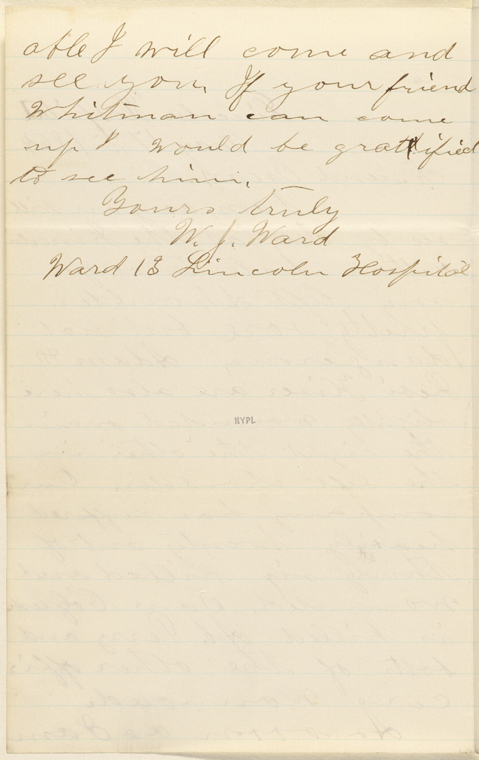 able I will come and
see you. If your friend
Whitman can come
up I would be gratified
to see him.
Yours truly
W. J. Ward
Ward 13 Lincoln Hospital
NYPL